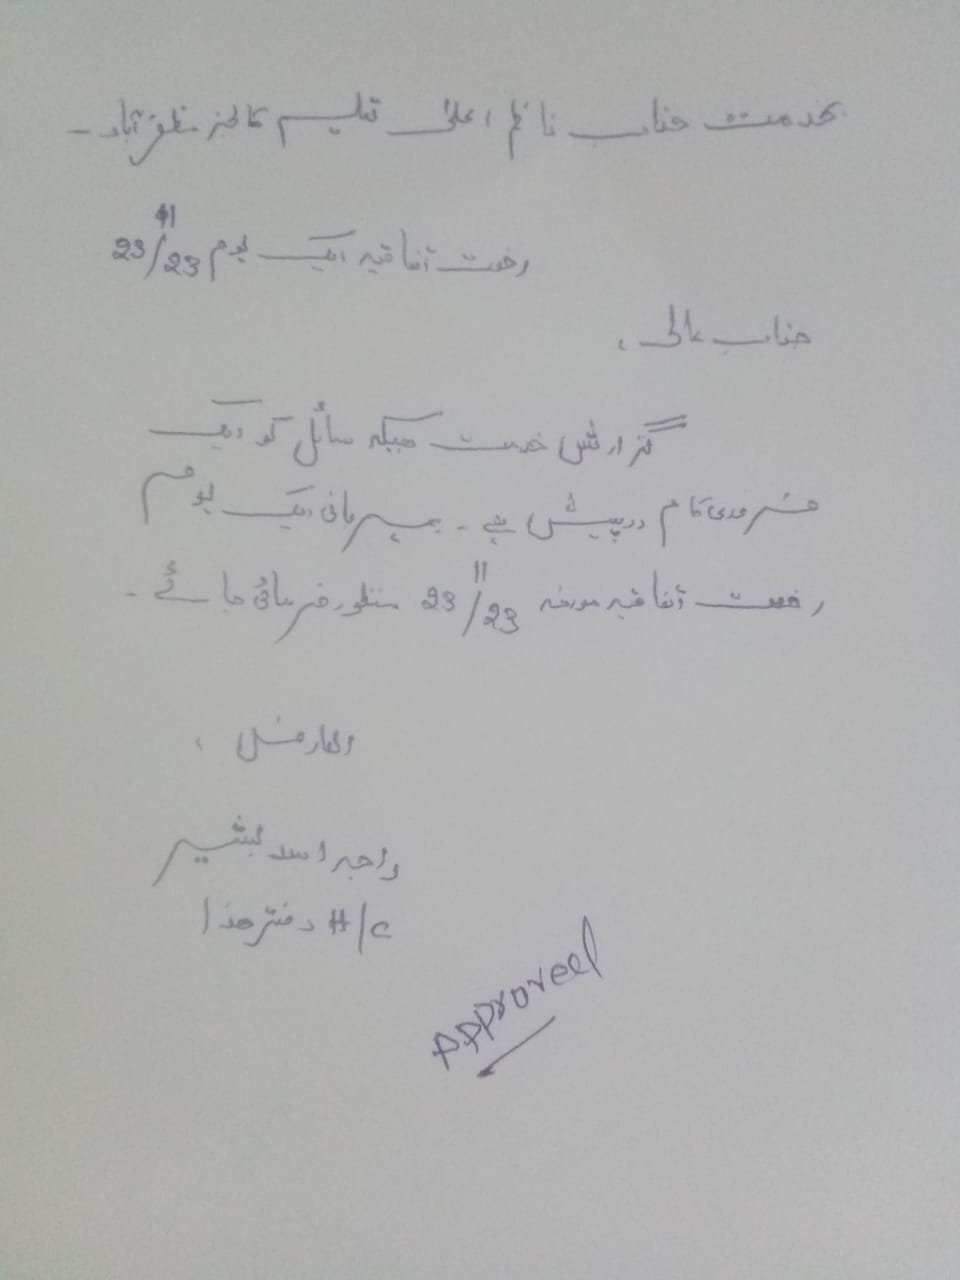 بخدمت جناب ناظم اعلیٰ تعلیم کالجز مظفرآباد ۔
رخصت اتفاقیہ ایک یوم 23/11/23
جناب عالی ،
گزارش خدمت ہیکہ سائل کو ایک
ضروری کام درپیش ہے ۔ بمہربانی ایک یوم
رخصت اتفاقیہ مورخہ 23/11/23 منظور فرمائی جائے ۔
العارض ،
راجہ اسد بشیر
H/C دفتر ھذا
Approved